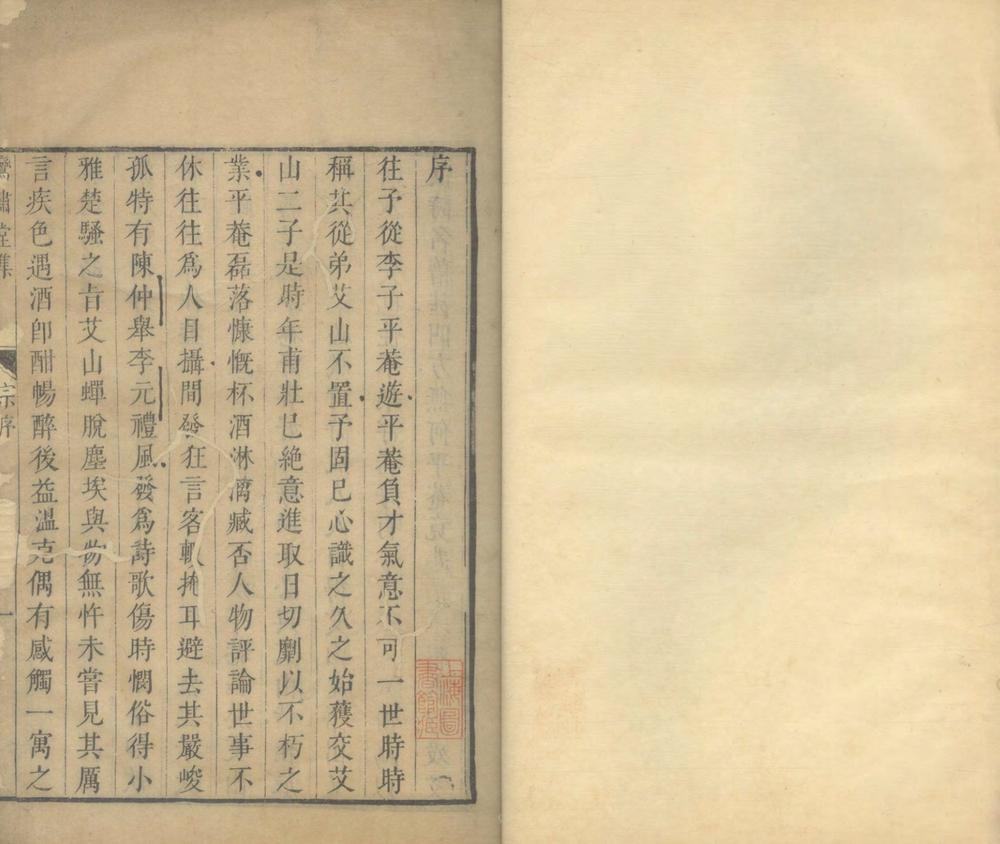 序
往予從李子平菴遊平菴負才氣意不可一世時時
稱其從弟艾山不置予固已心識之久之始獲交艾
山二子是時年甫壯已絕意進取日切劘以不朽之
業平菴磊落慷慨杯酒淋漓臧否人物評論世事不
休往往為人目攝間發狂言客輒掩耳避去其嚴峻
孤特有陳仲舉李元禮風發為詩歌傷時憫俗得小
雅楚騷之旨艾山蟬脫塵埃與物無忤未嘗見其厲
言疾色遇酒即酣暢醉後益溫克偶有感觸一寓之
嘯堂集 宗序 一
上海圖書館藏